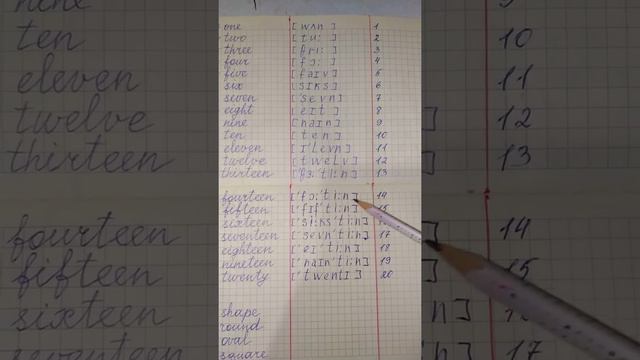 nine
ten
eleven
twelve
thirteen
fourteen
fifteen
sixteen
seventeen
one [wʌn] 1
two [tu:] 2
three [θri:] 3
four [fɔ:] 4
five [faɪv] 5
six [sɪks] 6
seven ['sevn] 7
eight [eɪt] 8
nine [naɪn] 9
ten [ten] 10
eleven [ɪ'levn] 11
twelve [twelv] 12
thirteen ['θɜ:'ti:n] 13
fourteen ['fɔ:'ti:n] 14
fifteen ['fɪf'ti:n] 15
sixteen ['si:ks'ti:n]
seventeen ['sevn'ti:n] 17
eighteen ['eɪ'ti:n] 18
nineteen ['naɪn'ti:n] 19
twenty ['twentɪ] 20
shape
round
oval
square
10
11
] 12
] 13
] 14
15
n]
n] 17